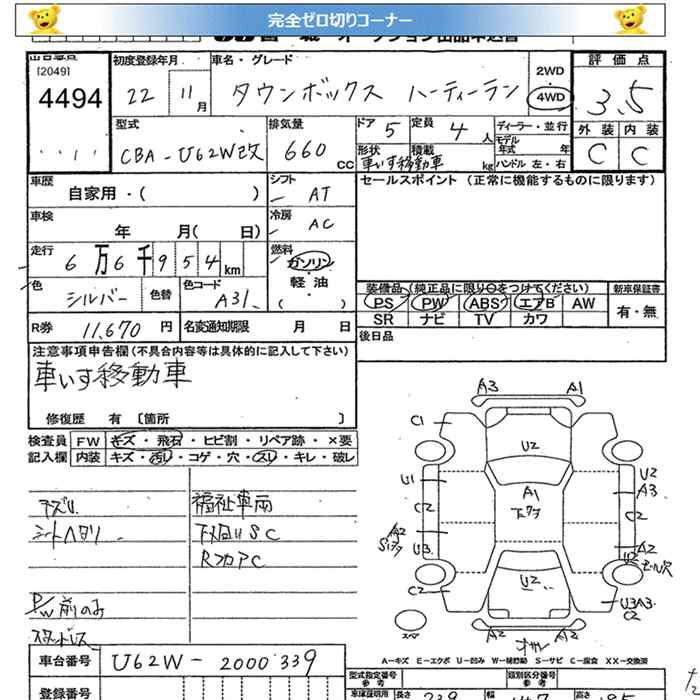 完全ゼロ切りコーナー
[2049]
4494
初度登録年月
22 11月
車名・グレード
タウンボックス ハーティーラン
2WD
4WD
評価点
3.5
外装 内装
C C
型式
CBA-U62W改
排気量
660 CC
ドア 5
定員 4 人
形状 積載
車いす移動車 kg
ディーラー・並行
モデル年式 年
ハンドル 左・右
車歴
自家用・( )
シフト
AT
セールスポイント (正常に機能するものに限ります)
車検
年 月( 日)
冷房
AC
走行
6万6千954km
燃料
ガソリン・軽油・( )
色
シルバー
色替
色コード
A31
装備品(純正品に限り○をつけてください)
PS PW ABS エアB AW
SR ナビ TV カワ
新車保証書
有・無
R券 11,670 円
名変通知期限 月 日
後日品
注意事項申告欄(不具合内容等は具体的に記入して下さい)
車いす移動車
修復歴 有 〔箇所 〕
検査員記入欄
FW キズ・飛石・ヒビ割・リペア跡・×要
内装 キズ・汚れ・コゲ・穴・スレ・キレ・破レ
シートヘタリ
P/W前のみ
スタッドレス
福祉車両
下廻りSC
RフロアC
A3 A1
C1
U2
U1
A1
C2
下タワ
A2
U3
C2
U2
U2
A3
C2
A2
U3A3
C2
スペア
A2 A2
A-キズ E-エクボ U-凹み W-補修跡 S-サビ C-腐食 XX-交換済
車台番号 U62W-2000339
登録番号
型式指定番号
類別区分番号
長さ 幅 高さ